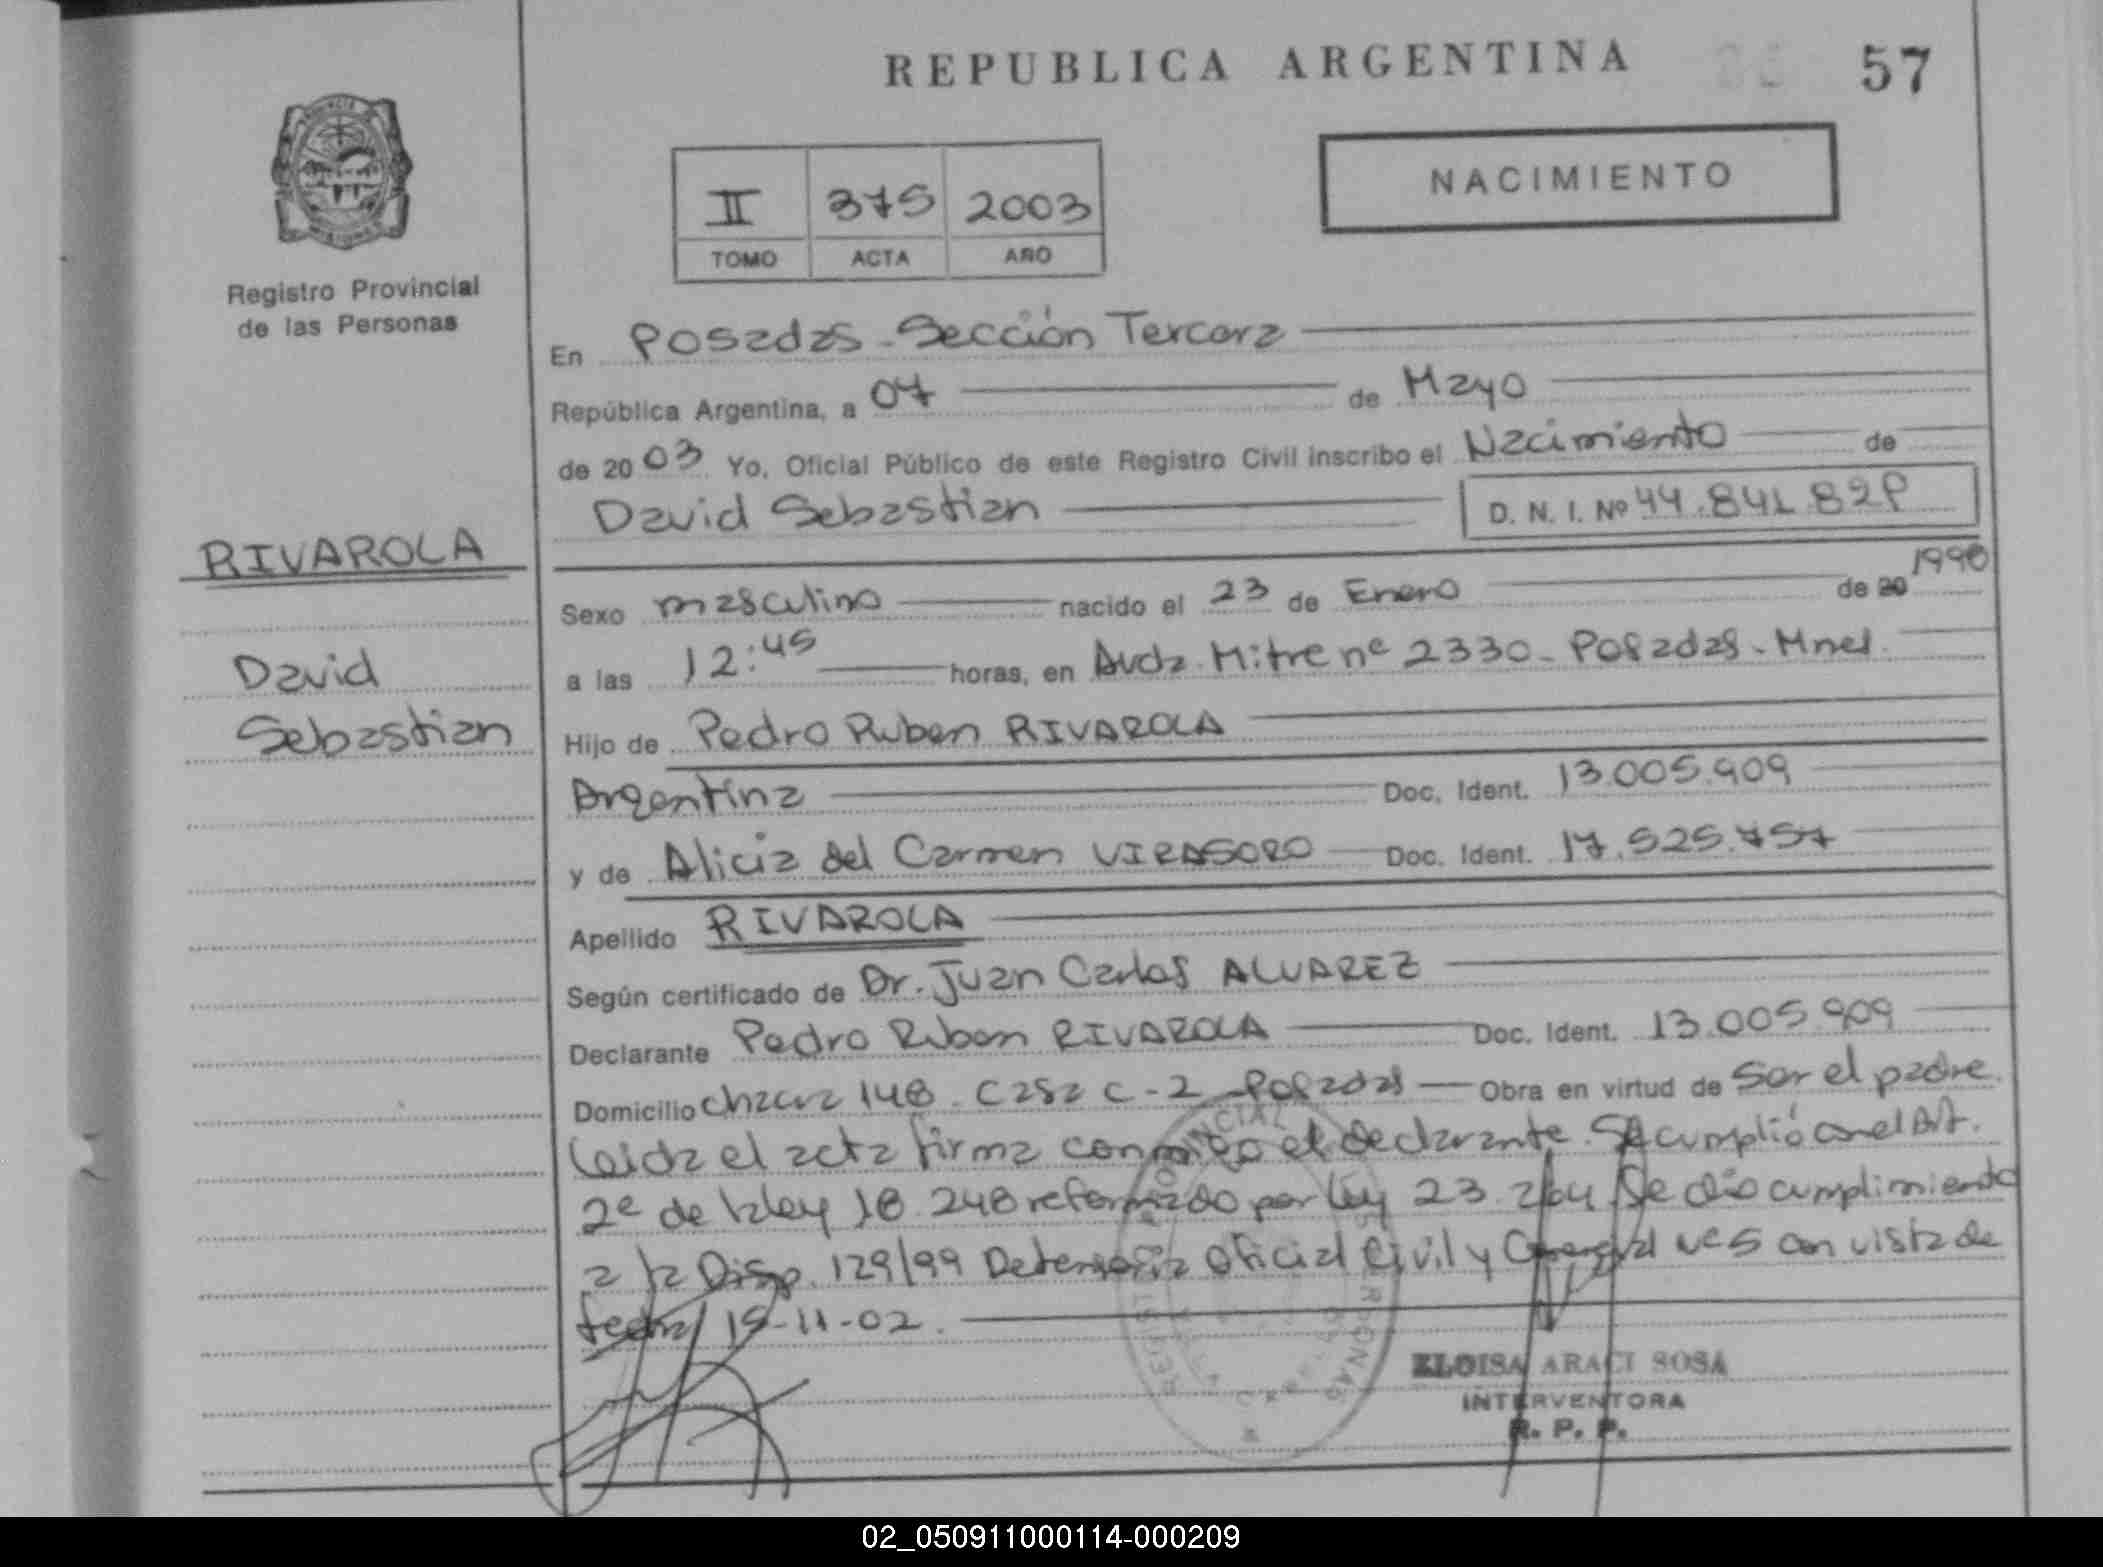 REPUBLICA ARGENTINA
57
NACIMIENTO
II 375 2003
TOMO ACTA AÑO
Registro Provincial
de las Personas
En Posadas - Sección Tercera
República Argentina, a 07 de Mayo
de 2003 Yo, Oficial Público de este Registro Civil inscribo el Nacimiento de
David Sebastian D. N. I. Nº 44.841.829
RIVAROLA
David
Sebastian
Sexo masculino nacido el 23 de Enero de 20 1998
a las 12:45 horas, en Avda. Mitre nº 2330 - Posadas - Mnes.
Hijo de Pedro Ruben RIVAROLA
Argentina Doc. Ident. 13.005.909
y de Alicia del Carmen VIRASORO Doc. Ident. 17.525.757
Apellido RIVAROLA
Según certificado de Dr. Juan Carlos ALVAREZ
Declarante Pedro Ruben RIVAROLA Doc. Ident. 13.005.909
Domicilio Chacra 148 - Casa C-2 - Posadas Obra en virtud de Ser el padre.
Leida el acta firma conmigo el declarante. Se cumplió con el Art.
2º de la ley 18.248 reformado por Ley 23.264 Se dio cumplimiento
a la Disp. 129/99 Defensoria Oficial Civil y con vista de
fecha 15-11-02.
ELOISA ARACI SOSA
INTERVENTORA
R. P. P.
02_050911000114-000209